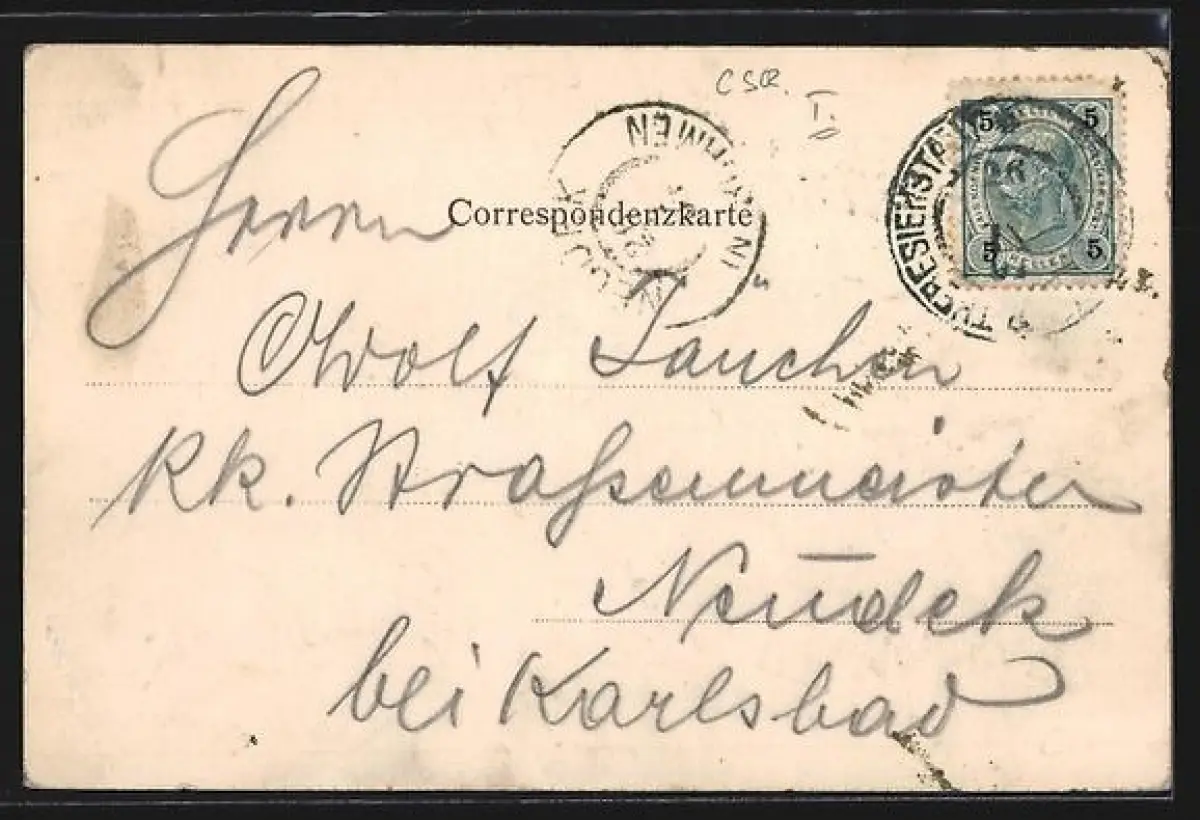 C SR.
I.
Correspondenzkarte
5 5
5 HELLER 5
THERESIENSTA
NEUDEK IN
HMEN
Herrn
Adolf
kk. Straßenmeister
Neudek
bei Karlsbad